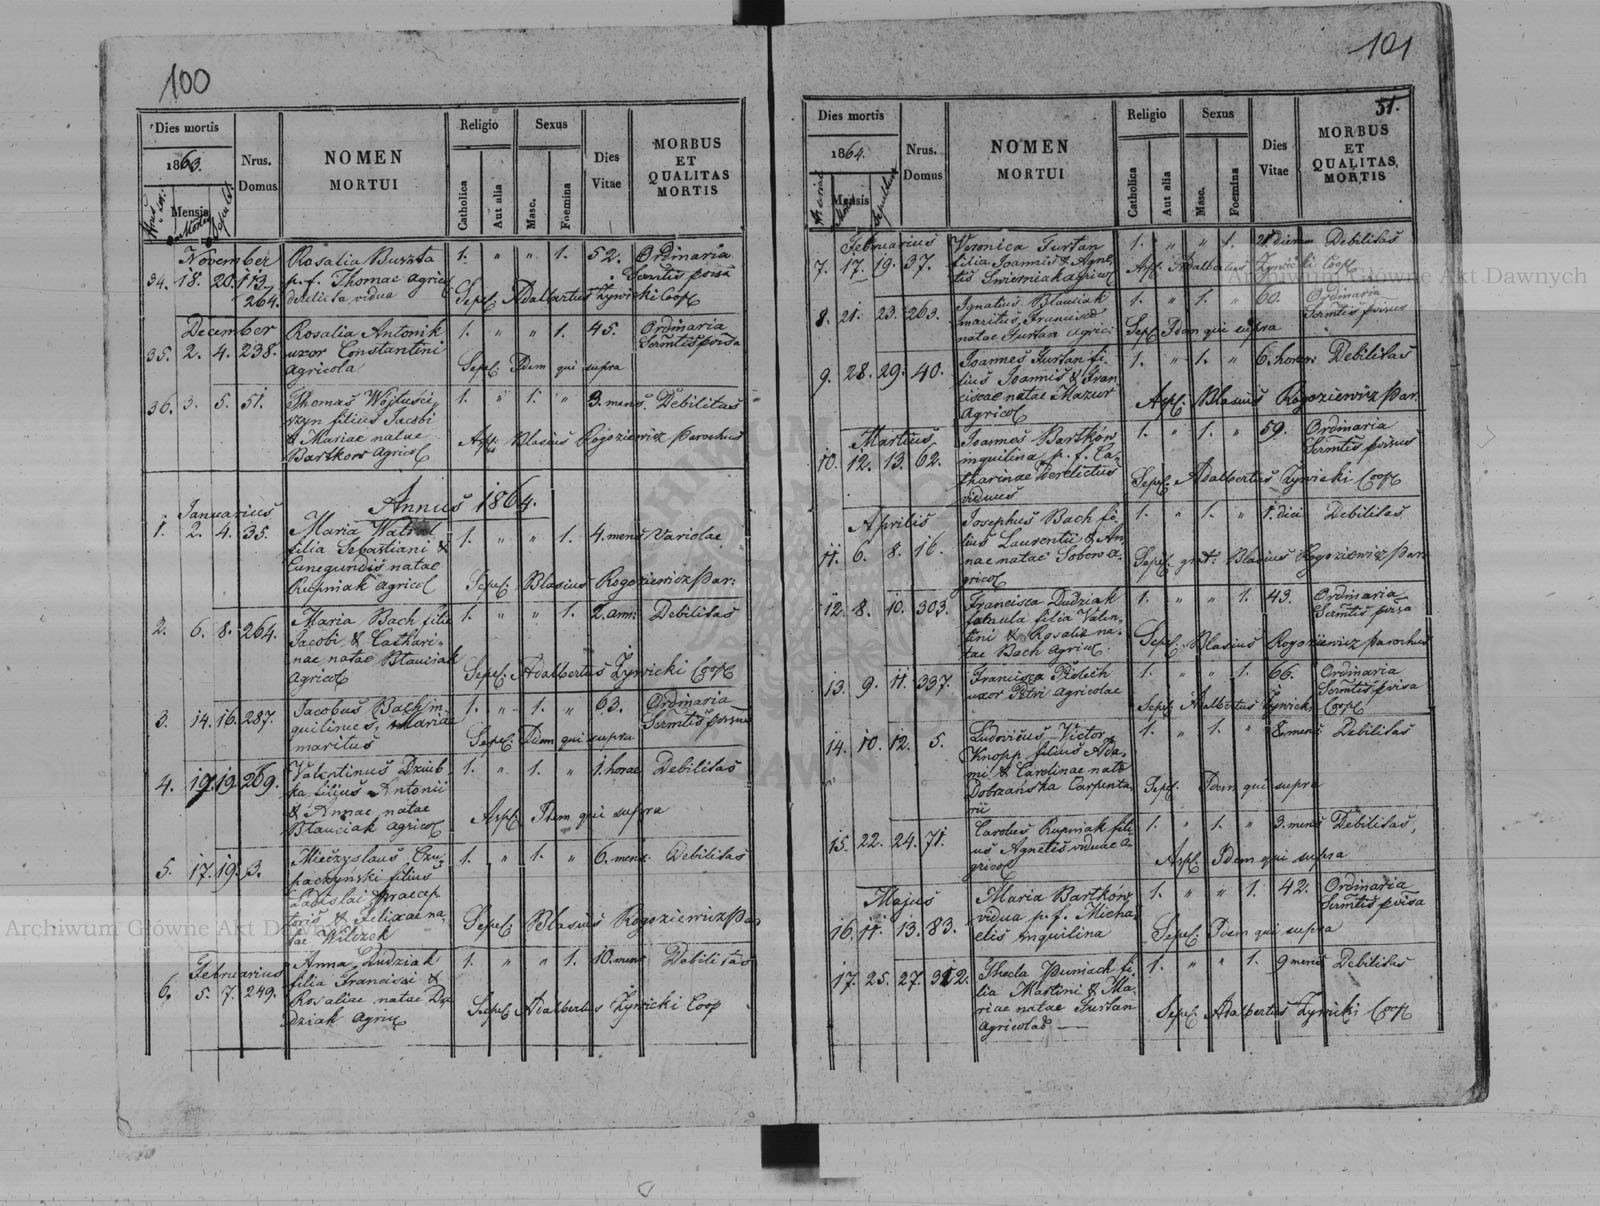 100
Dies mortis
1863.
Mensis
Nrus.
Domus
NOMEN
MORTUI
Religio
Catholica
Aut alia
Sexus
Masc.
Foemina
Dies
Vitae
MORBUS
ET
QUALITAS
MORTIS
November
34. 18. 20. 113/264.
Rosalia Buszta
p. f. Thomae Agric
derelicta vidua
1. " " 1. 52. Ordinaria
Sermtis poisa
Sepel. Adalbertus Zywicki Coop
December
35. 2. 4. 238.
Rosalia Antonik
uxor Constantini
agricola
1. " " 1. 45. Ordinaria
Sermtis poisa
Sepel. Idem qui supra
36. 3. 5. 51.
Thomas Wojtuści
szyn filius Jacobi
& Mariae natae
Bartkow agricol
1. " 1. " 3. mens. Debilitas
Asp. Blasius Rogoziewicz Parochus
Annus 1864.
Januarius
1. 2. 4. 35.
Maria Watral
filia Sebastiani &
Cunegundis natae
Rupniak agricol
1. " " 1. 4. mens Variolae
Sepel. Blasius Rogoziewicz Par:
2. 6. 8. 264.
Maria Bach filia
Jacobi & Cathari-
nae natae Błauciak
Agricol
1. " " 1. 2. ann: Debilitas
Sepel. Adalbertus Zywicki Coop
3. 14. 16. 287.
Jacobus Bach in-
quilinus, Mariae
maritus
1. " 1. " 63. Ordinaria
Sermtis poisus
Sepel. Idem qui supra
4. 19. 19. 269.
Valentinus Dziub-
ka filius Antonii
& Annae natae
Błauciak agricol
1. " 1. " 1. horae Debilitas
Asp. Idem qui supra
5. 17. 19. 3.
Mieczyslaus Czu-
paczynski filius
Ladislai praecep-
toris & Felixae na-
tae Wilczek
1. " 1. " 6. mens. Debilitas
Sepel. Blasius Rogoziewicz Par
Februarius
6. 5. 7. 249.
Anna Dudziak
filia Francisci &
Rosaliae natae Du
dziak Agric
1. " " 1. 10. mens Debilitas
Sepel. Adalbertus Zywicki Coop
101
51.
Dies mortis
1864.
Mensis
Nrus.
Domus
NOMEN
MORTUI
Religio
Catholica
Aut alia
Sexus
Masc.
Foemina
Dies
Vitae
MORBUS
ET
QUALITAS
MORTIS
Februarius
7. 17. 19. 37.
Veronica Furtan
filia Joannis & Agne-
tis Swierniak agricol
1. " " 1. 21. dierum Debilitas
Asp. Adalbertus Zywicki Coop
8. 21. 23. 263.
Ignatius Blauciak
maritus, Franciscae
natae Furtan agric:
1. " 1. " 60. Ordinaria
Sermtis poisus
Sepel. Idem qui supra
9. 28. 29. 40.
Joannes Furtan fi-
lius Joannis & Fran-
ciscae natae Mazur
Agricol
1. " 1. " 6. horar: Debilitas
Asp. Blasius Rogoziewicz Par.
Martius
10. 12. 13. 62.
Joannes Bartków
inquilinus p. f. Ca-
tharinae derelictus
viduus
1. " 1. " 59. Ordinaria
Sermtis poisus
Sepel. Adalbertus Zywicki Coop
Aprilis
11. 6. 8. 16.
Josephus Bach fi-
lius Laurentii & An-
nae natae Sobow a-
gricol
1. " 1. " 1. diei Debilitas
Sepel. Blasius Rogoziewicz Par:
12. 8. 10. 303.
Francisca Dudziak
famula filia Valen-
tini & Rosaliae na-
tae Bach Agricol.
1. " " 1. 43. Ordinaria
Sermtis poisa
Sepel. Blasius Rogoziewicz Parochus
13. 9. 11. 337.
Francisca Pielech
uxor Petri agricolae
1. " " 1. 66. Ordinaria
Sermtis poisa
Sepel. Adalbertus Zywicki Coop
14. 10. 12. 5.
Ludovicus Victor
Knopp filius Ada-
mi & Carolinae nata
Dobrzańska Carpenta-
rii
1. " 1. " 8. mens Debilitas
Sepel. Idem qui supra
15. 22. 24. 71.
Carolus Rupniak fili-
us Agnetis viduae a-
gricol
1. " 1. " 3. mens Debilitas,
Asp. Idem qui supra
Majus
16. 11. 13. 83.
Maria Bartków
vidua p. f. Micha-
elis inquilina
1. " " 1. 42. Ordinaria
Sermtis poisa
Sepel. Idem qui supra
17. 25. 27. 312.
Thecla Puniach fi-
lia Martini & Ma-
riae natae Furtan
agricolae
1. " " 1. 9 mensis Debilitas
Sepel. Adalbertus Zywicki Coop
Archiwum Główne Akt Dawnych
Archiwum Główne Akt Dawnych